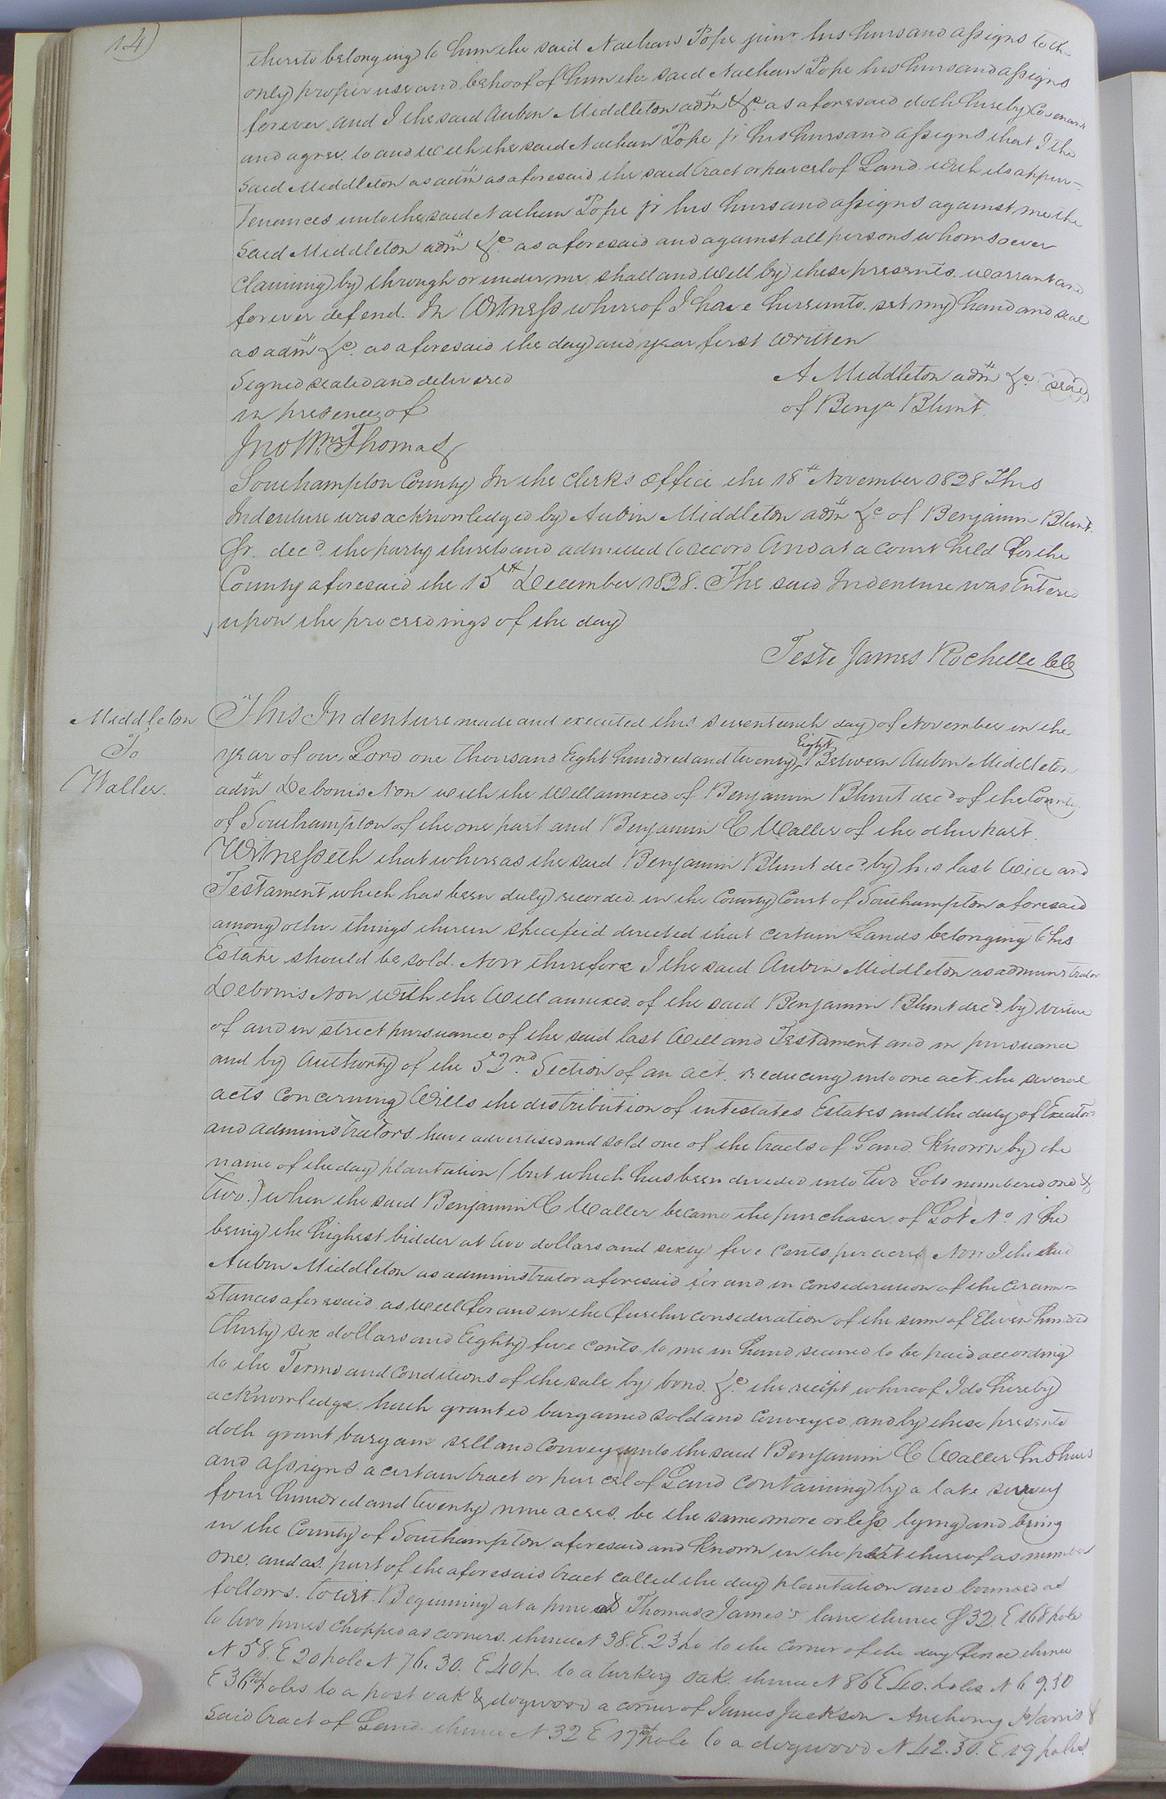 14)
thereto belonging to him the said Nathan Pope junr his heirs and assigns to th
only proper use and behoof of him the said Nathan Pope his heirs and assigns
forever and I the said Aubin Middleton adm &c as aforesaid doth hereby Covenant
and agree to and with the said Nathan Pope jr his heirs and assigns that I the
said Middleton as adm as aforesaid the said tract or parcel of Land with its appur=
tenances unto the said Nathan Pope jr his heirs and assigns against me the
said Middleton adm &c as aforesaid and against all persons whomsoever
claiming by through or under me shall and will by these presents warrant and
forever defend. In Witness whereof I have hereunto set my hand and seal
as adm &c. as aforesaid the day and year first written
Signed sealed and delivered
in presence of
Jno Wm Thomas
A Middleton adm &c (seal)
of Benja Blunt.
Southampton County In the Clerk's Office the 18th November 1828 This
Indenture was acknowledged by Aubin Middleton adm &c of Benjamin Blunt
Sr. decd the party thereto and admitted to record And at a court held for the
County aforesaid the 15th December 1828. The said Indenture was Entered
upon the proceedings of the day
Teste James Rochelle CC
Middleton
To
Waller.
This Indenture made and executed this seventeenth day of November in the
year of our Lord one thousand Eight hundred and twenty Eight Between Aubin Middleton
adm Debonis Non with the Will annexed of Benjamin Blunt decd of the County
of Southampton of the one part and Benjamin C Waller of the other part.
Witnesseth that whereas the said Benjamin Blunt decd by his last Will and
Testament which has been duly recorded in the County Court of Southampton aforesaid
among other things therein specifeid directed that certain Lands belonging to his
Estate should be sold. Now therefore I the said Aubin Middleton as administrator
Debonis Non with the Will annexed of the said Benjamin Blunt decd by virtue
of and in strict pursuance of the said last Will and Testament and in pursuance
and by Authority of the 52nd Section of an act. reducing into one act the several
acts concerning Wills the distribution of intestates Estates and the duty of Executors
and administrators have advertised and sold one of the tracts of Land known by the
name of the day plantation (but which has been devided into two Lots numbered one &
two.) when the said Benjamin C Waller became the purchaser of Lot No 1 he
being the highest bidder at two dollars and sixty five cents per acre Now I the said
Aubin Middleton as administrator aforesaid for and in consideration of the circum=
stances aforesaid as well for and in the further consideration of the sum of Eleven hundred
thirty six dollars and Eighty five cents to me in hand secured to be paid according
to the Terms and conditions of the sale by bond &c the reciept whereof I do hereby
acknowledge. hath granted bargained sold and conveyed and by these presents
doth grant bargain sell and convey unto the said Benjamin C Waller his heirs
and assigns a certain tract or parcel of Land containing by a late survey
four hundred and twenty nine acres. be the same more or less lying and being
in the County of Southampton aforesaid and known in the plat thereof as number
one. and as part of the aforesaid tract called the day plantation and bounded as
follows. towit. Beginning at a pine Thomas James's lane thence S 32. E 168 pole
to two pines chopped as corners. thence N 38. E 23 po to the corner of the day fence thence
N 58. E 20 pole N 76.30. E 40 p. to a turkey oak. thence N 86 E 40. poles N 69.30
E 36 poles to a post oak & dogwood a corner of James Jackson Anthony Harris &
said tract of Land thence N 32 E 17 pole to a dogwood N 42.30. E 19 poles